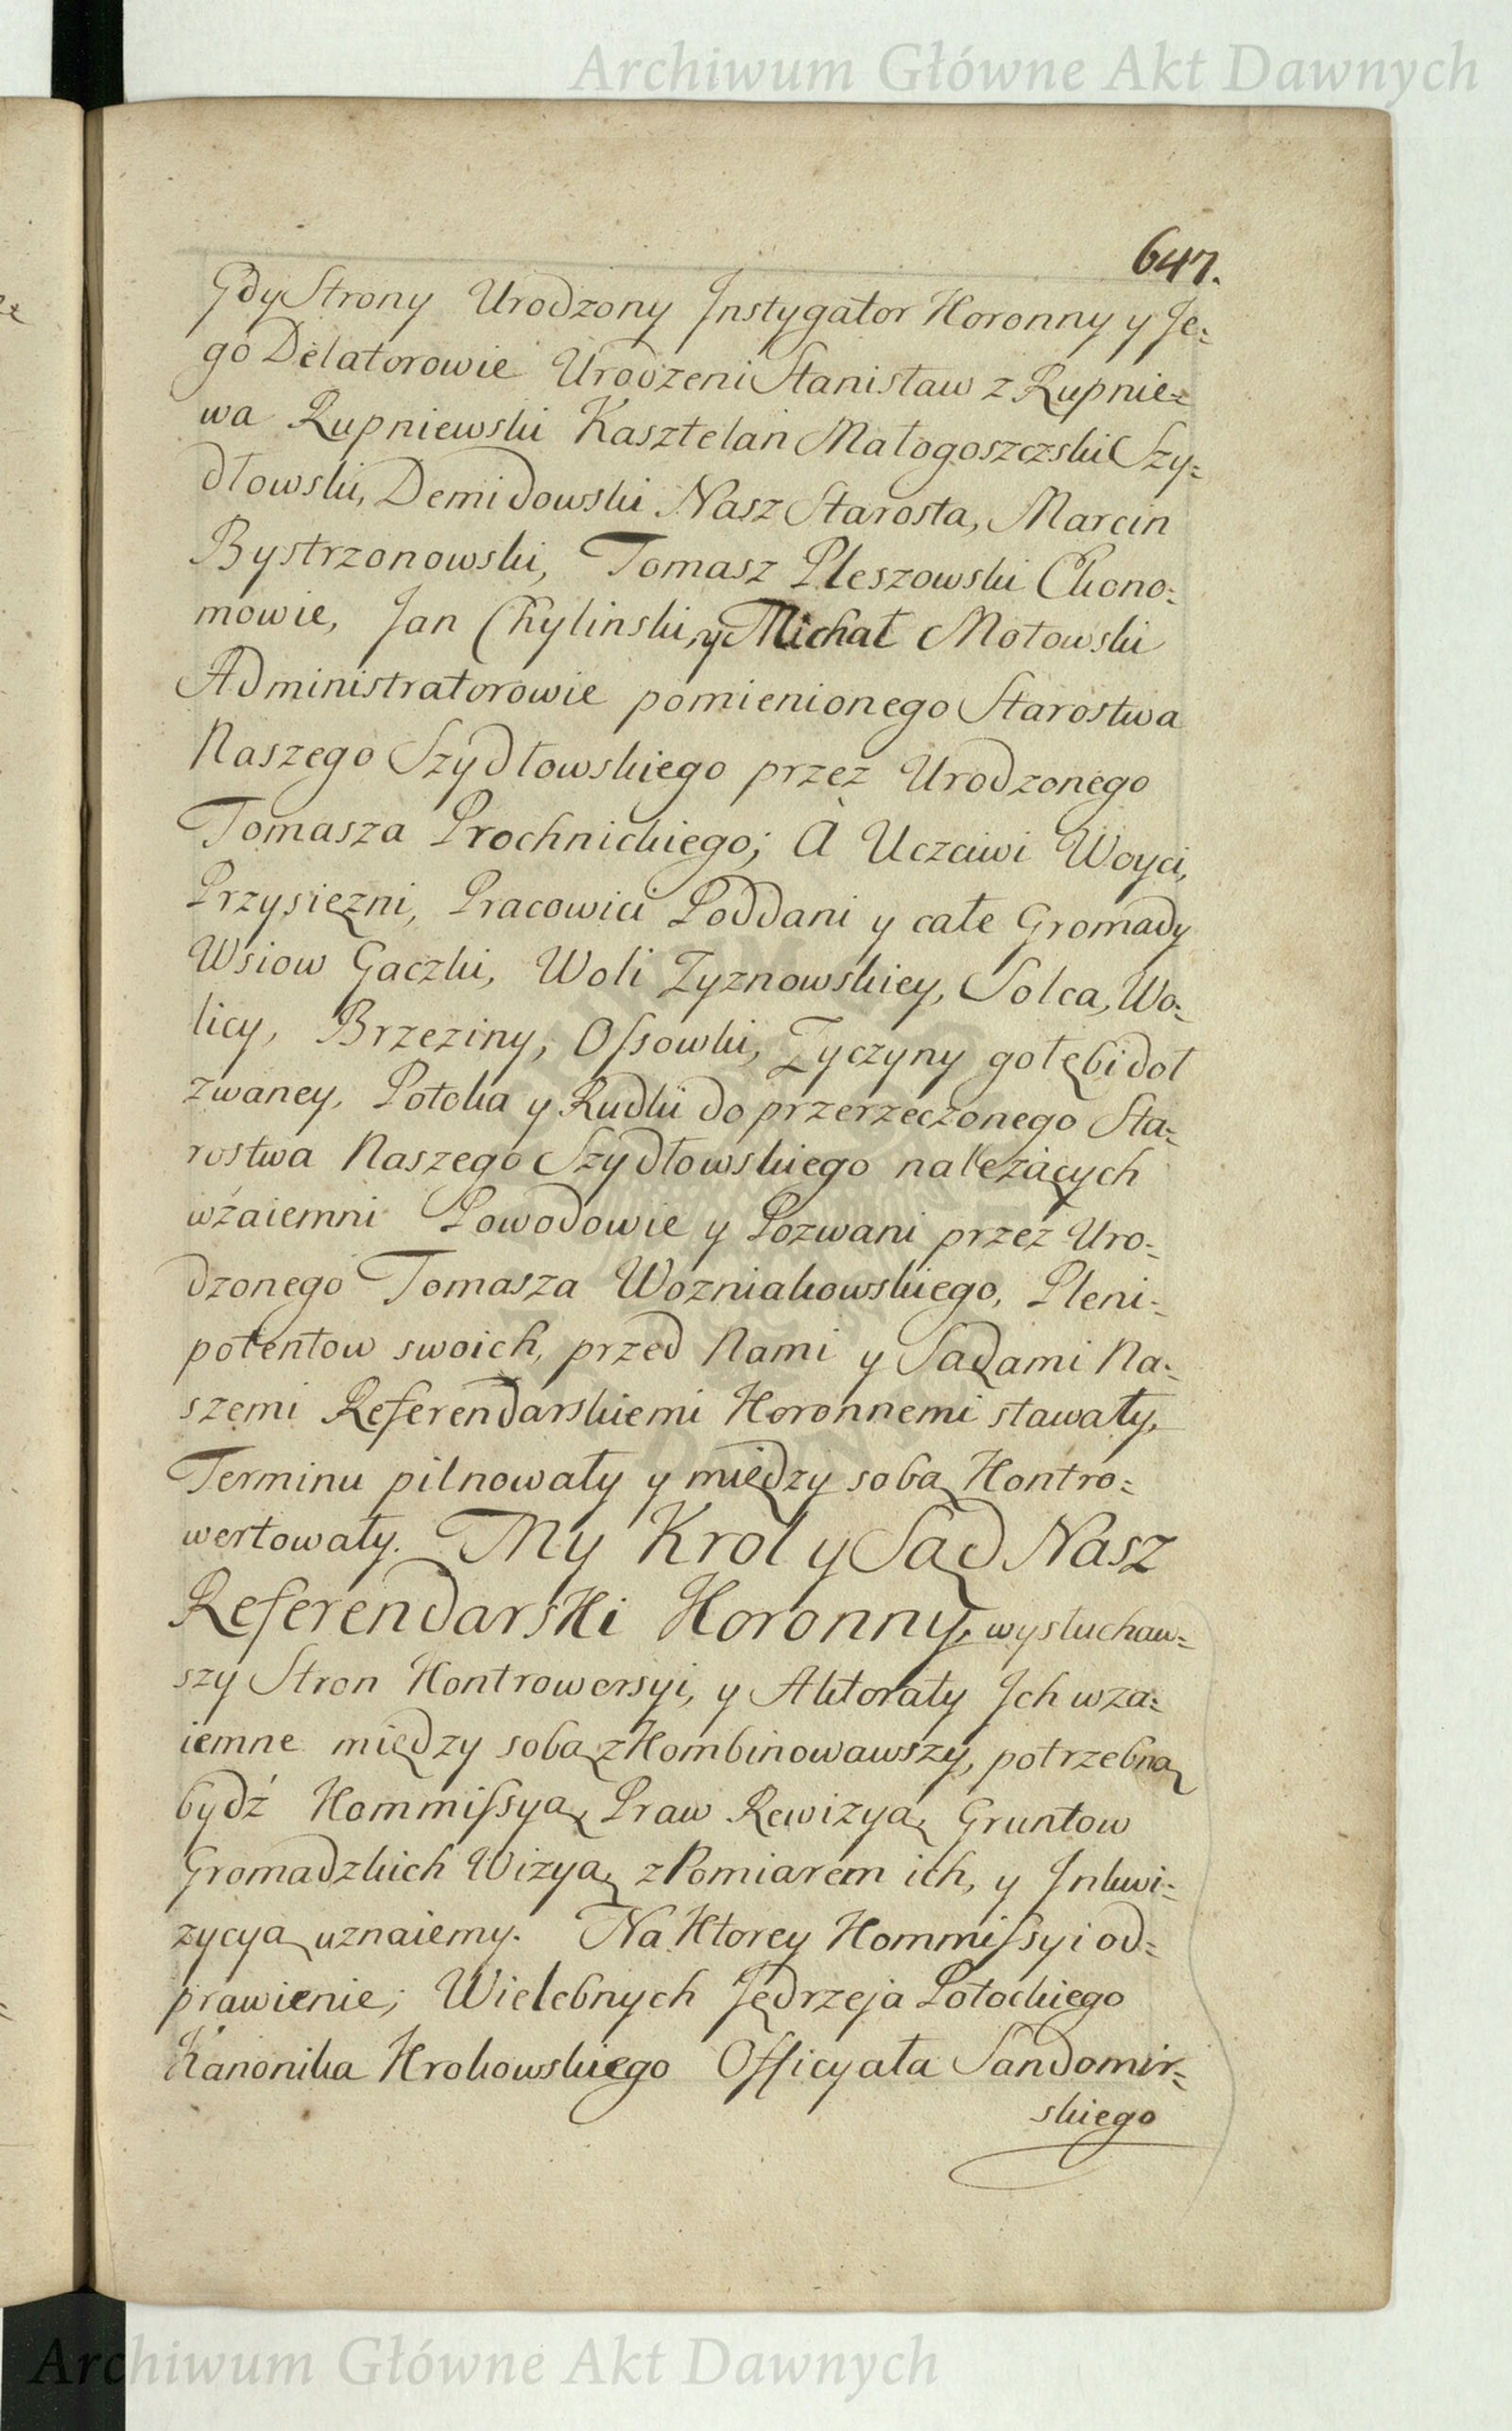 Archiwum Główne Akt Dawnych
647.
Gdy Strony Urodzony Instygator Koronny y Je=
go Delatorowie Urodzeni Stanisław z Rupnie=
wa Rupniewski Kasztelan Małogoszczski Szy=
dłowski, Demidowski Nasz Starosta, Marcin
Bystrzonowski, Tomasz Pleszowski Ekono=
mowie, Jan Chylinski, y Michał Motowski
Administratorowie pomienionego Starostwa
Naszego Szydłowskiego przez Urodzonego
Tomasza Prochnickiego; A Uczciwi Woyci,
Przysięzni, Pracowici Poddani y całe Gromady
Wsiow Gaczki, Woli Zyznowskiey, Solca, Wo=
licy, Brzeziny, Ossowki, Zyczyny gołębi doł
zwaney, Potoka y Rudki do przerzeczonego Sta=
rostwa Naszego Szydłowskiego należących
wzaiemni Powodowie y Pozwani przez Uro=
dzonego Tomasza Wozniakowskiego, Pleni=
potentow swoich, przed Nami y Sądami Na=
szemi Referendarskiemi Koronnemi stawały,
Terminu pilnowały y między sobą Kontro=
wertowały. My Krol y Sąd Nasz
Referendarski Koronny, wysłuchaw=
szy Stron Kontrowersyi, y Aktoraty Ich wza=
iemne między sobą zKombinowawszy, potrzebną
bydź Kommissyą, Praw Rewizyą, Gruntow
Gromadzkich Wizyą, z Pomiarem ich, y Inkwi=
zycyą uznaiemy. Na Ktorey Kommissyi od=
prawienie; Wielebnych Jędrzeja Potockiego
Kanonika Krokowskiego Officyała Sandomir=
skiego
Archiwum Główne Akt Dawnych